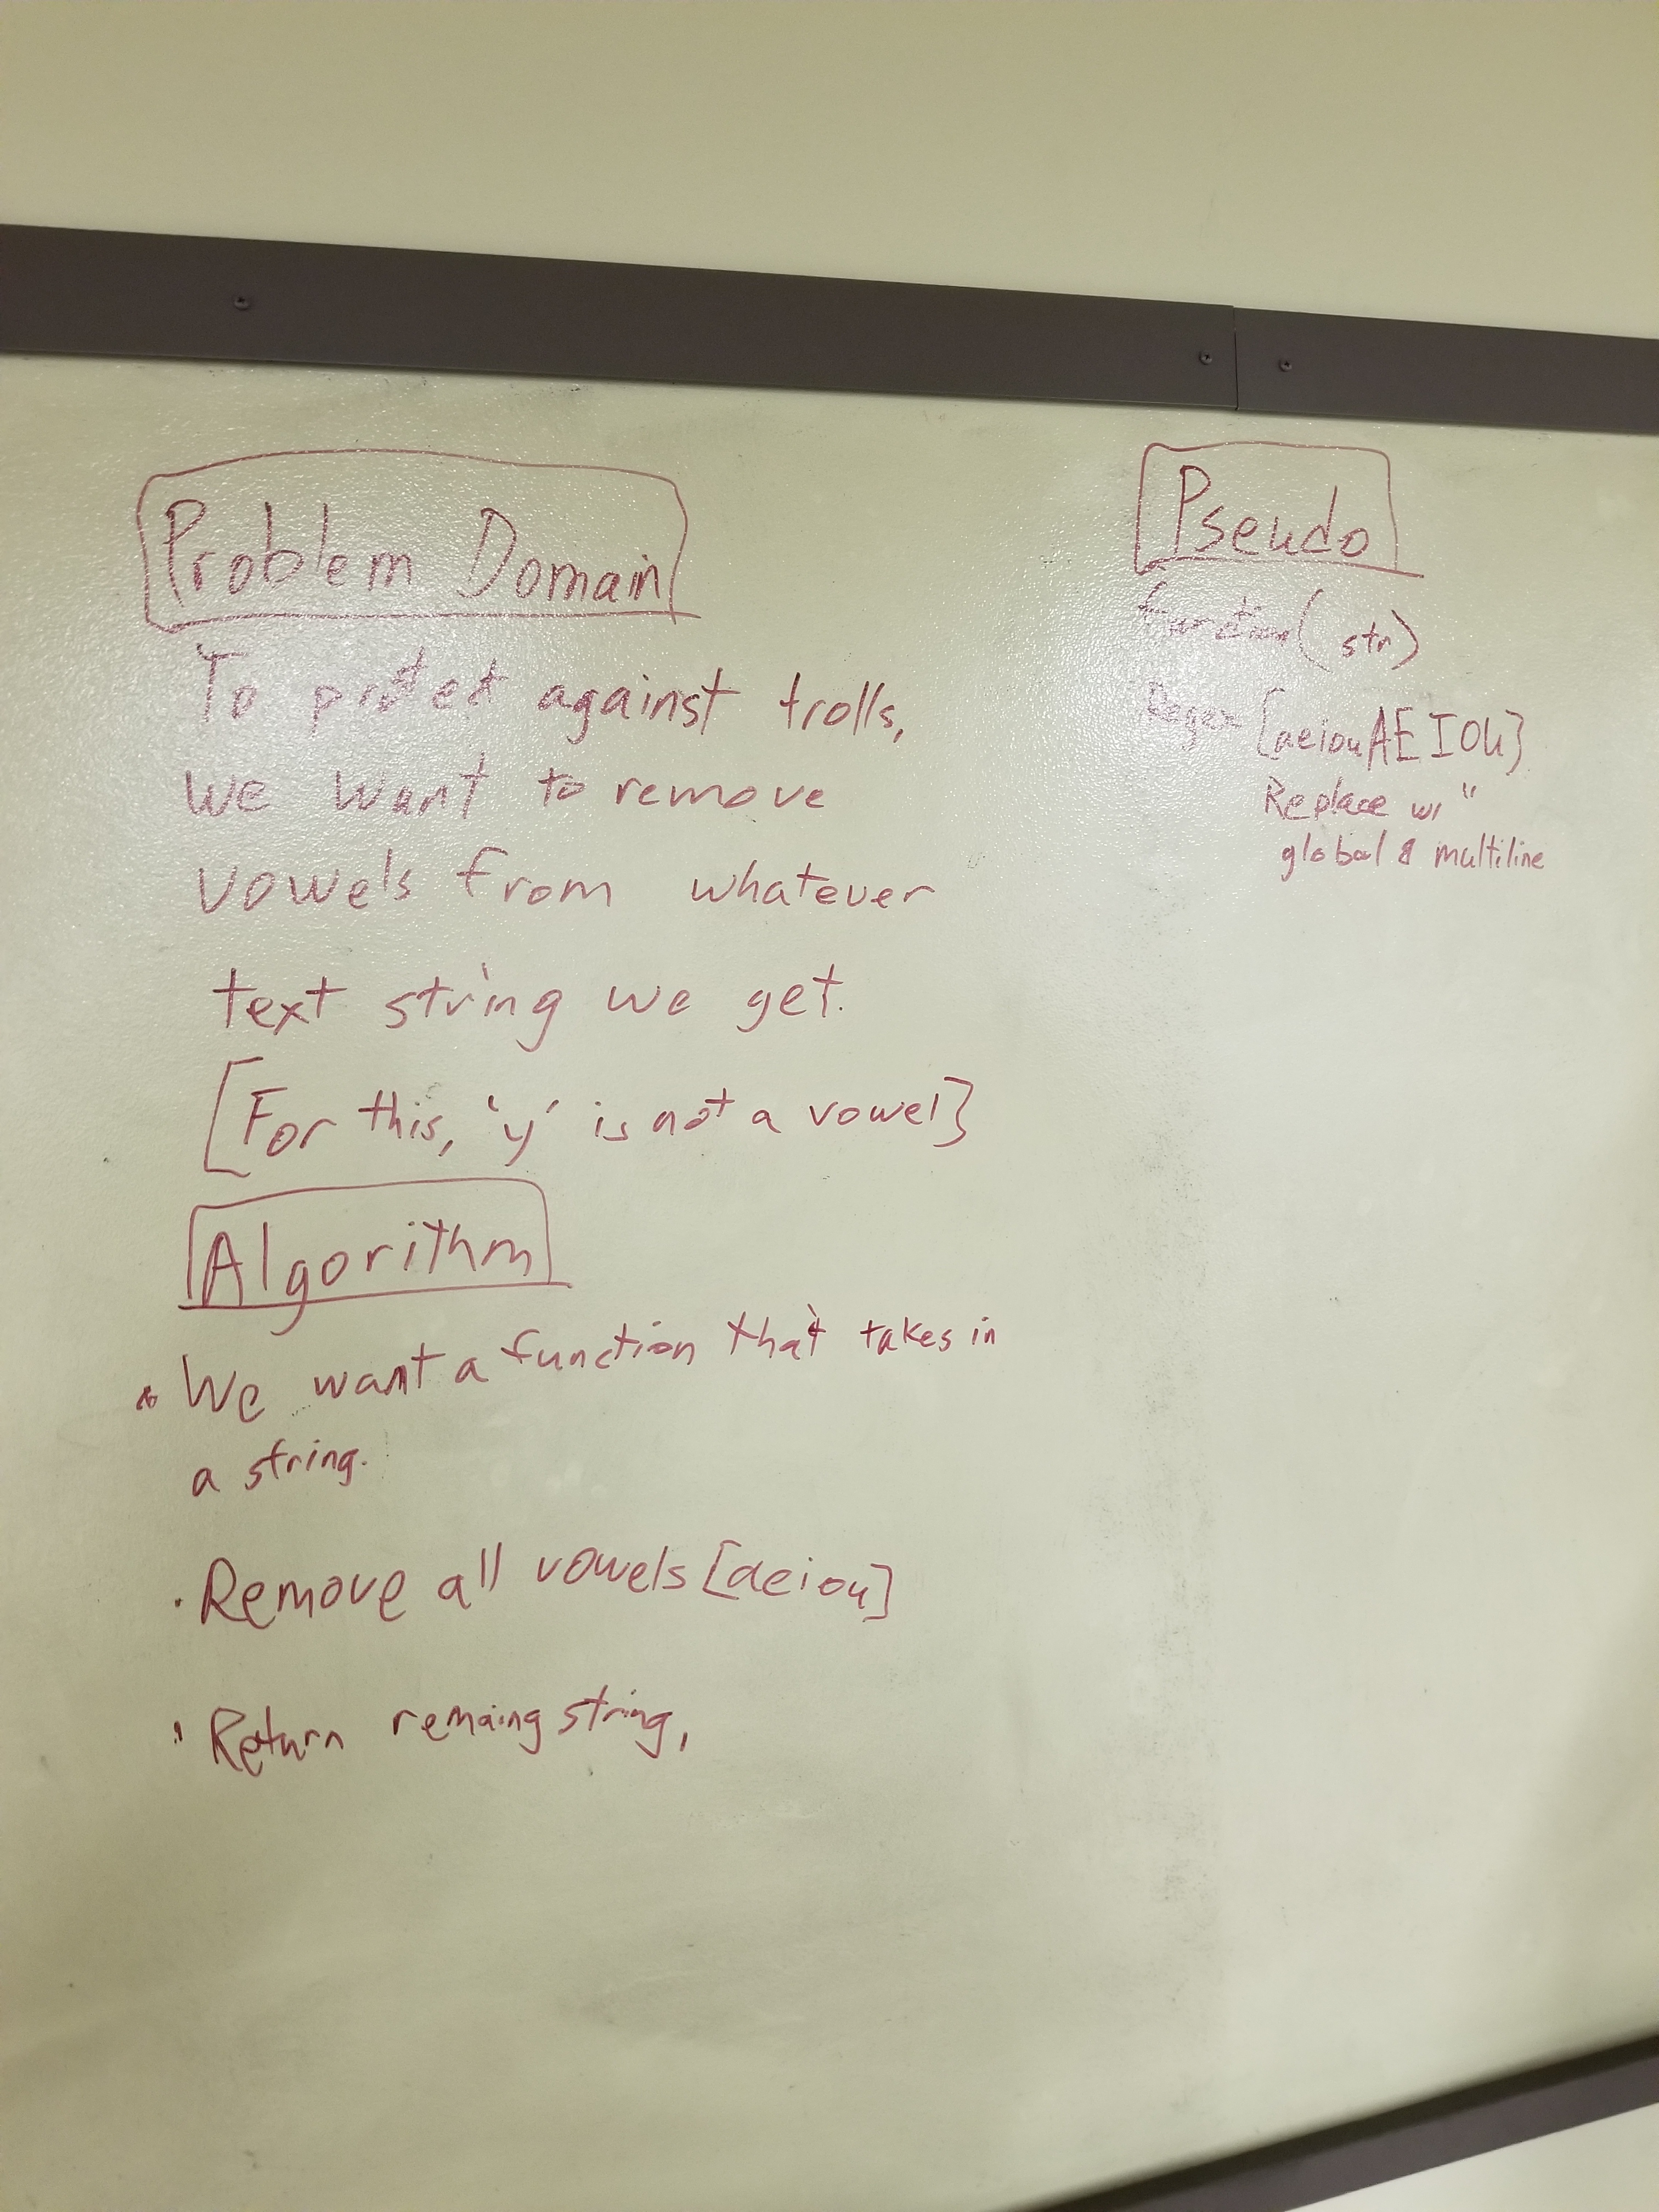 Problem Domain
To protect against trolls,
we want to remove
vowels from whatever
text string we get.
[For this, 'y' is not a vowel]
Algorithm
• We want a function that takes in
a string.
• Remove all vowels [aeiou]
• Return remaing string,
Pseudo
function( str)
Regex [aeiouAEIOU]
Replace w/ "
global & multiline